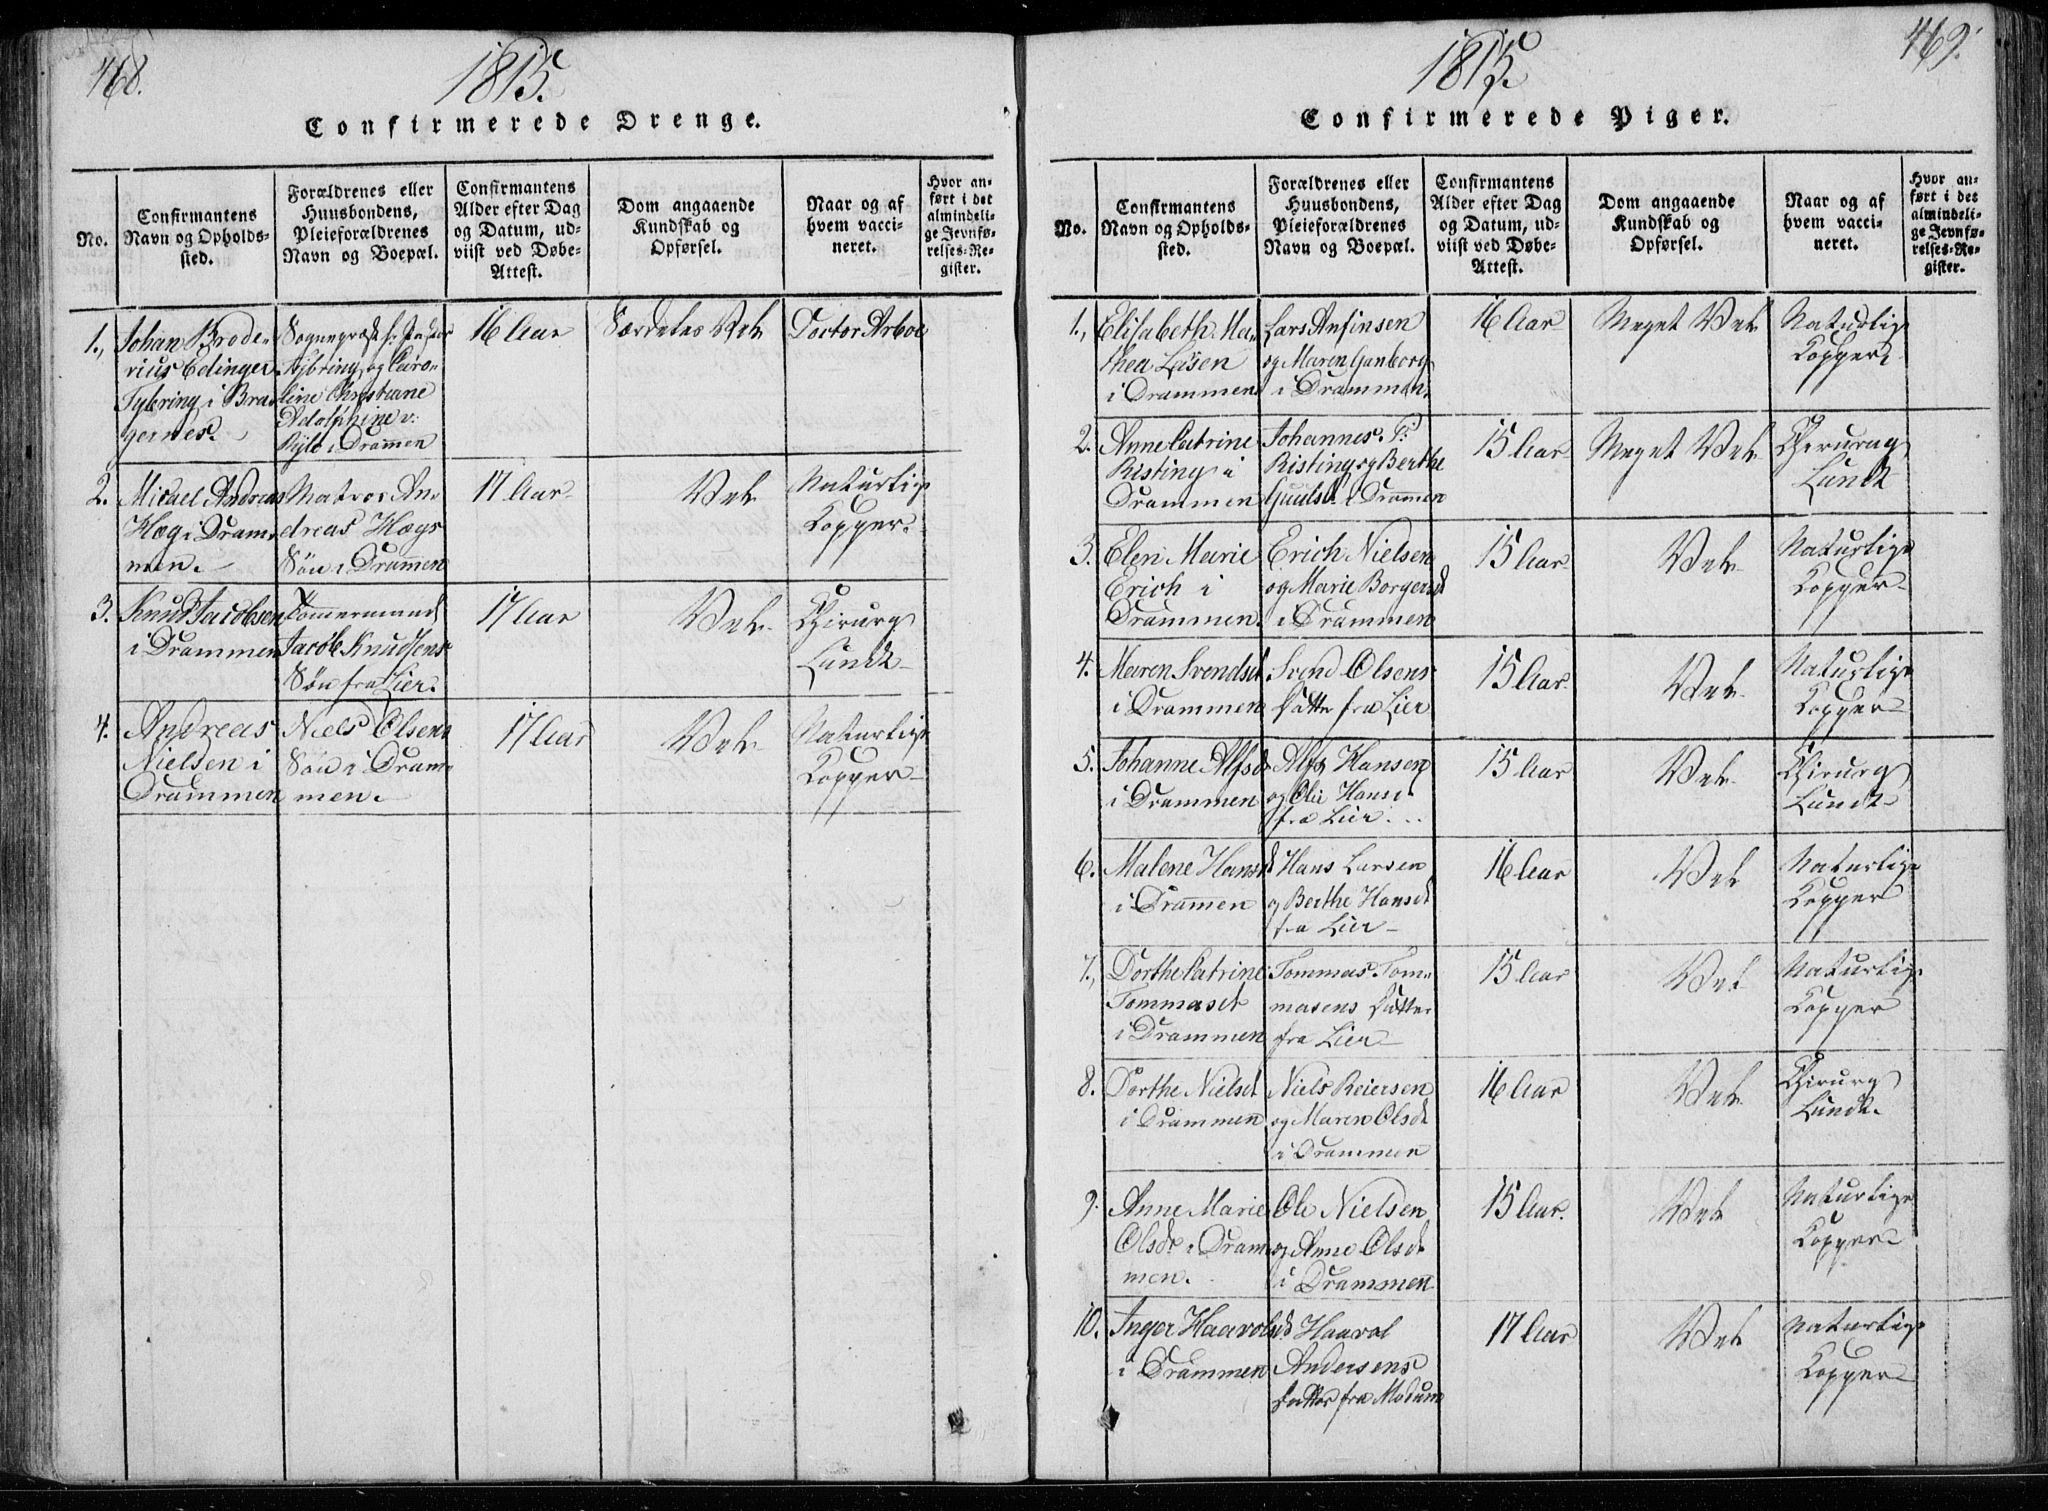 468.
1815.
Confirmerede Drenge.
No.
Confirmantens
Navn og Opholds-
sted.
Forældrenes eller
Huusbondens,
Pleieforældrenes
Navn og Boepæl.
Confirmantens
Alder efter Dag
og Datum, ud-
viist ved Døbe-
Attest.
Dom angaaende
Kundskab og
Opførsel.
Naar og af
hvem vacci-
neret.
Hvor an-
ført i det
almindeli-
ge Jevnfø-
relses-Re-
gister.
1.,
Johan Brode-
rius Edinger
Tybring i Bra-
gernes.
Sognepræst
Tybring og Caro-
line Christiane
Adolphine v:
i Drammen
16 Aar
Særdeles Vel
Doctor Arboe
2.
Micael Andreas
Høeg i Dram-
men.
Matros An-
dreas Høegs
Søn i Drammen
17 Aar
Vel
Naturlige
Kopper.
3.
Knud Jacobsen
i Drammen
Tømmermand
Jacob Knudsens
Søn fra Lier.
17 Aar
Vel
Chirurg
Lundt
4.
Andreas
Nielsen i
Drammen
Niels Olsens
Søn i Dram-
men.
17 Aar
Vel
Naturlige
Kopper
469.
1815.
Confirmerede Piger.
No.
Confirmantens
Navn og Opholds-
sted.
Forældrenes eller
Huusbondens,
Pleieforældrenes
Navn og Boepæl.
Confirmantens
Alder efter Dag
og Datum, ud-
viist ved Døbe-
Attest.
Dom angaaende
Kundskab og
Opførsel.
Naar og af
hvem vacci-
neret.
Hvor an-
ført i det
almindeli-
ge Jevnfø-
relses-Re-
gister.
1.,
Elisabeth Ma-
thea Larsen
i Drammen
Lars Anfinsen
og Maren Gunborg
i Drammen.
16 Aar
Meget Vel
Naturlige
Kopper
2.
Anne Catrine
Risting i
Drammen
Johannes P:
Risting og Berthe
Guulsd. i Drammen
15 Aar
Meget Vel
Chirurg
Lundt
3.
Elen Marie
Erich i
Drammen
Erich Nielsen
og Marie Borgersd
i Drammen
15 Aar
Vel
Naturlige
Kopper
4.
Maren Svendsd
i Drammen
Svend Olsens
Datter fra Lier
15 Aar
Vel
Naturlige
Kopper
5.
Johanne Alfsd
i Drammen
Alf Hansen
og Olie Hansd
fra Lier
15 Aar
Vel
Chirurg
Lundt
6.
Malene Hansd
i Drammen
Hans Larsen
og Berthe Hansd
fra Lier
16 Aar
Vel
Naturlige
Kopper
7.,
Dorthe Catrine
Tommasd
i Drammen
Tommas Tom-
masens Datter
fra Lier
15 Aar
Vel
Naturlige
Kopper
8.
Dorthe Nielsd
i Drammen
Niels Reiersen
og Maren Olsd
i Drammen
16 Aar
Vel
Chirurg
Lundt.
9.
Anne Marie
Olsd. i Dram-
men.
Ole Nielsen
og Anne Olsd
i Drammen
15 Aar.
Vel
Naturlige
Kopper
10.
Inger Haavolsd
i Drammen
Haavol
Andersens
Datter fra Modum
17 Aar
Vel
Naturlige
Kopper